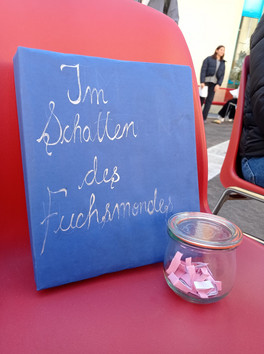 Im
Schatten
des
Fuchsmondes